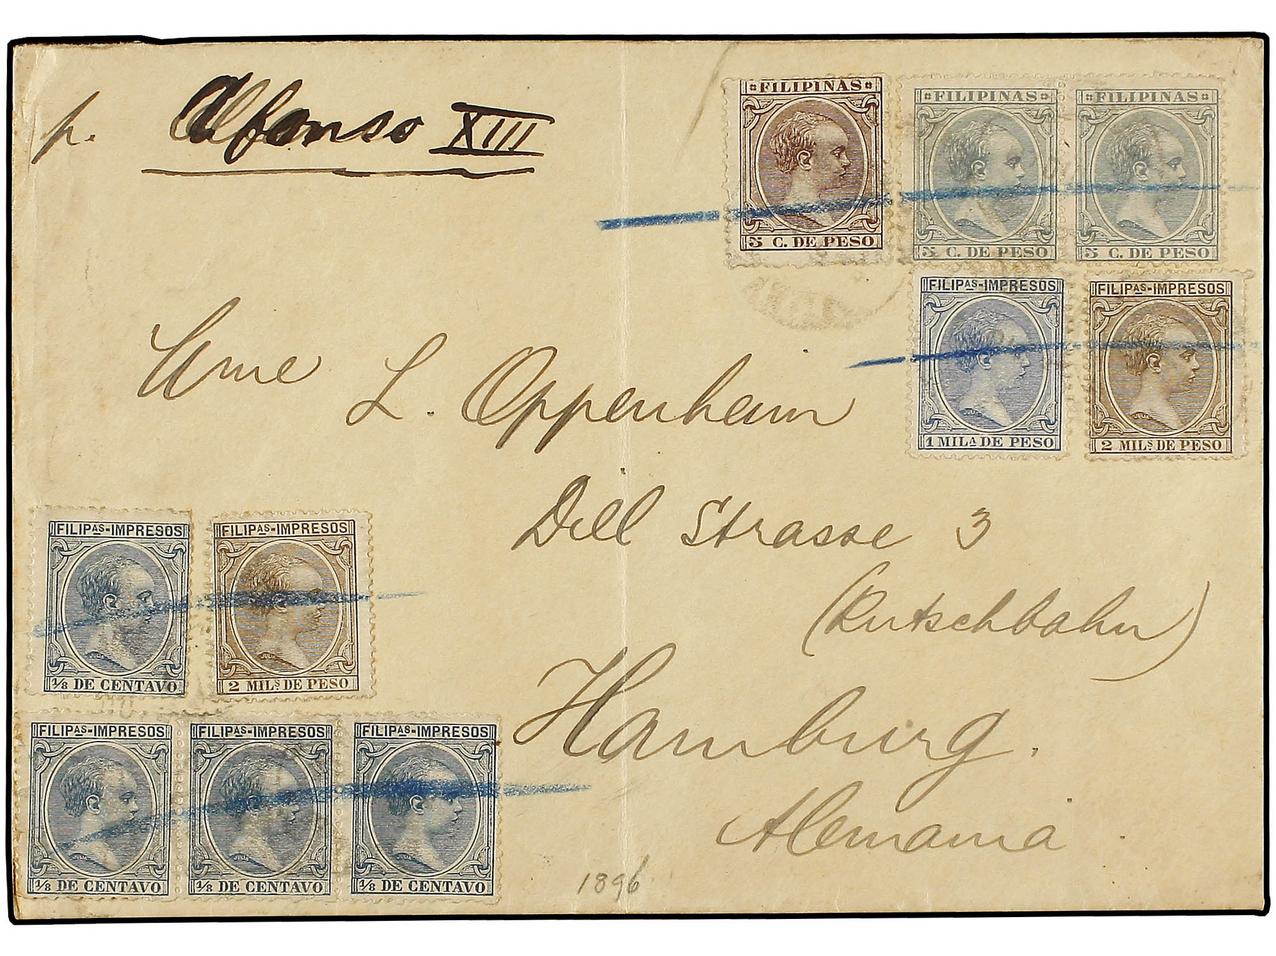 p. Alfonso XIII
FILIPINAS
5 C. DE PESO
FILIPINAS
5 C. DE PESO
FILIPINAS
5 C. DE PESO
FILIPAS-IMPRESOS
1 MILA DE PESO
FILIPAS-IMPRESOS
2 MILS DE PESO
L. Oppenheim
Dill Strasse 3
(Rutschbahn)
Hamburg.
Alemania.
FILIPAS-IMPRESOS
1/8 DE CENTAVO
FILIPAS-IMPRESOS
2 MILS DE PESO
FILIPAS-IMPRESOS
1/8 DE CENTAVO
FILIPAS-IMPRESOS
1/8 DE CENTAVO
FILIPAS-IMPRESOS
1/8 DE CENTAVO
1896